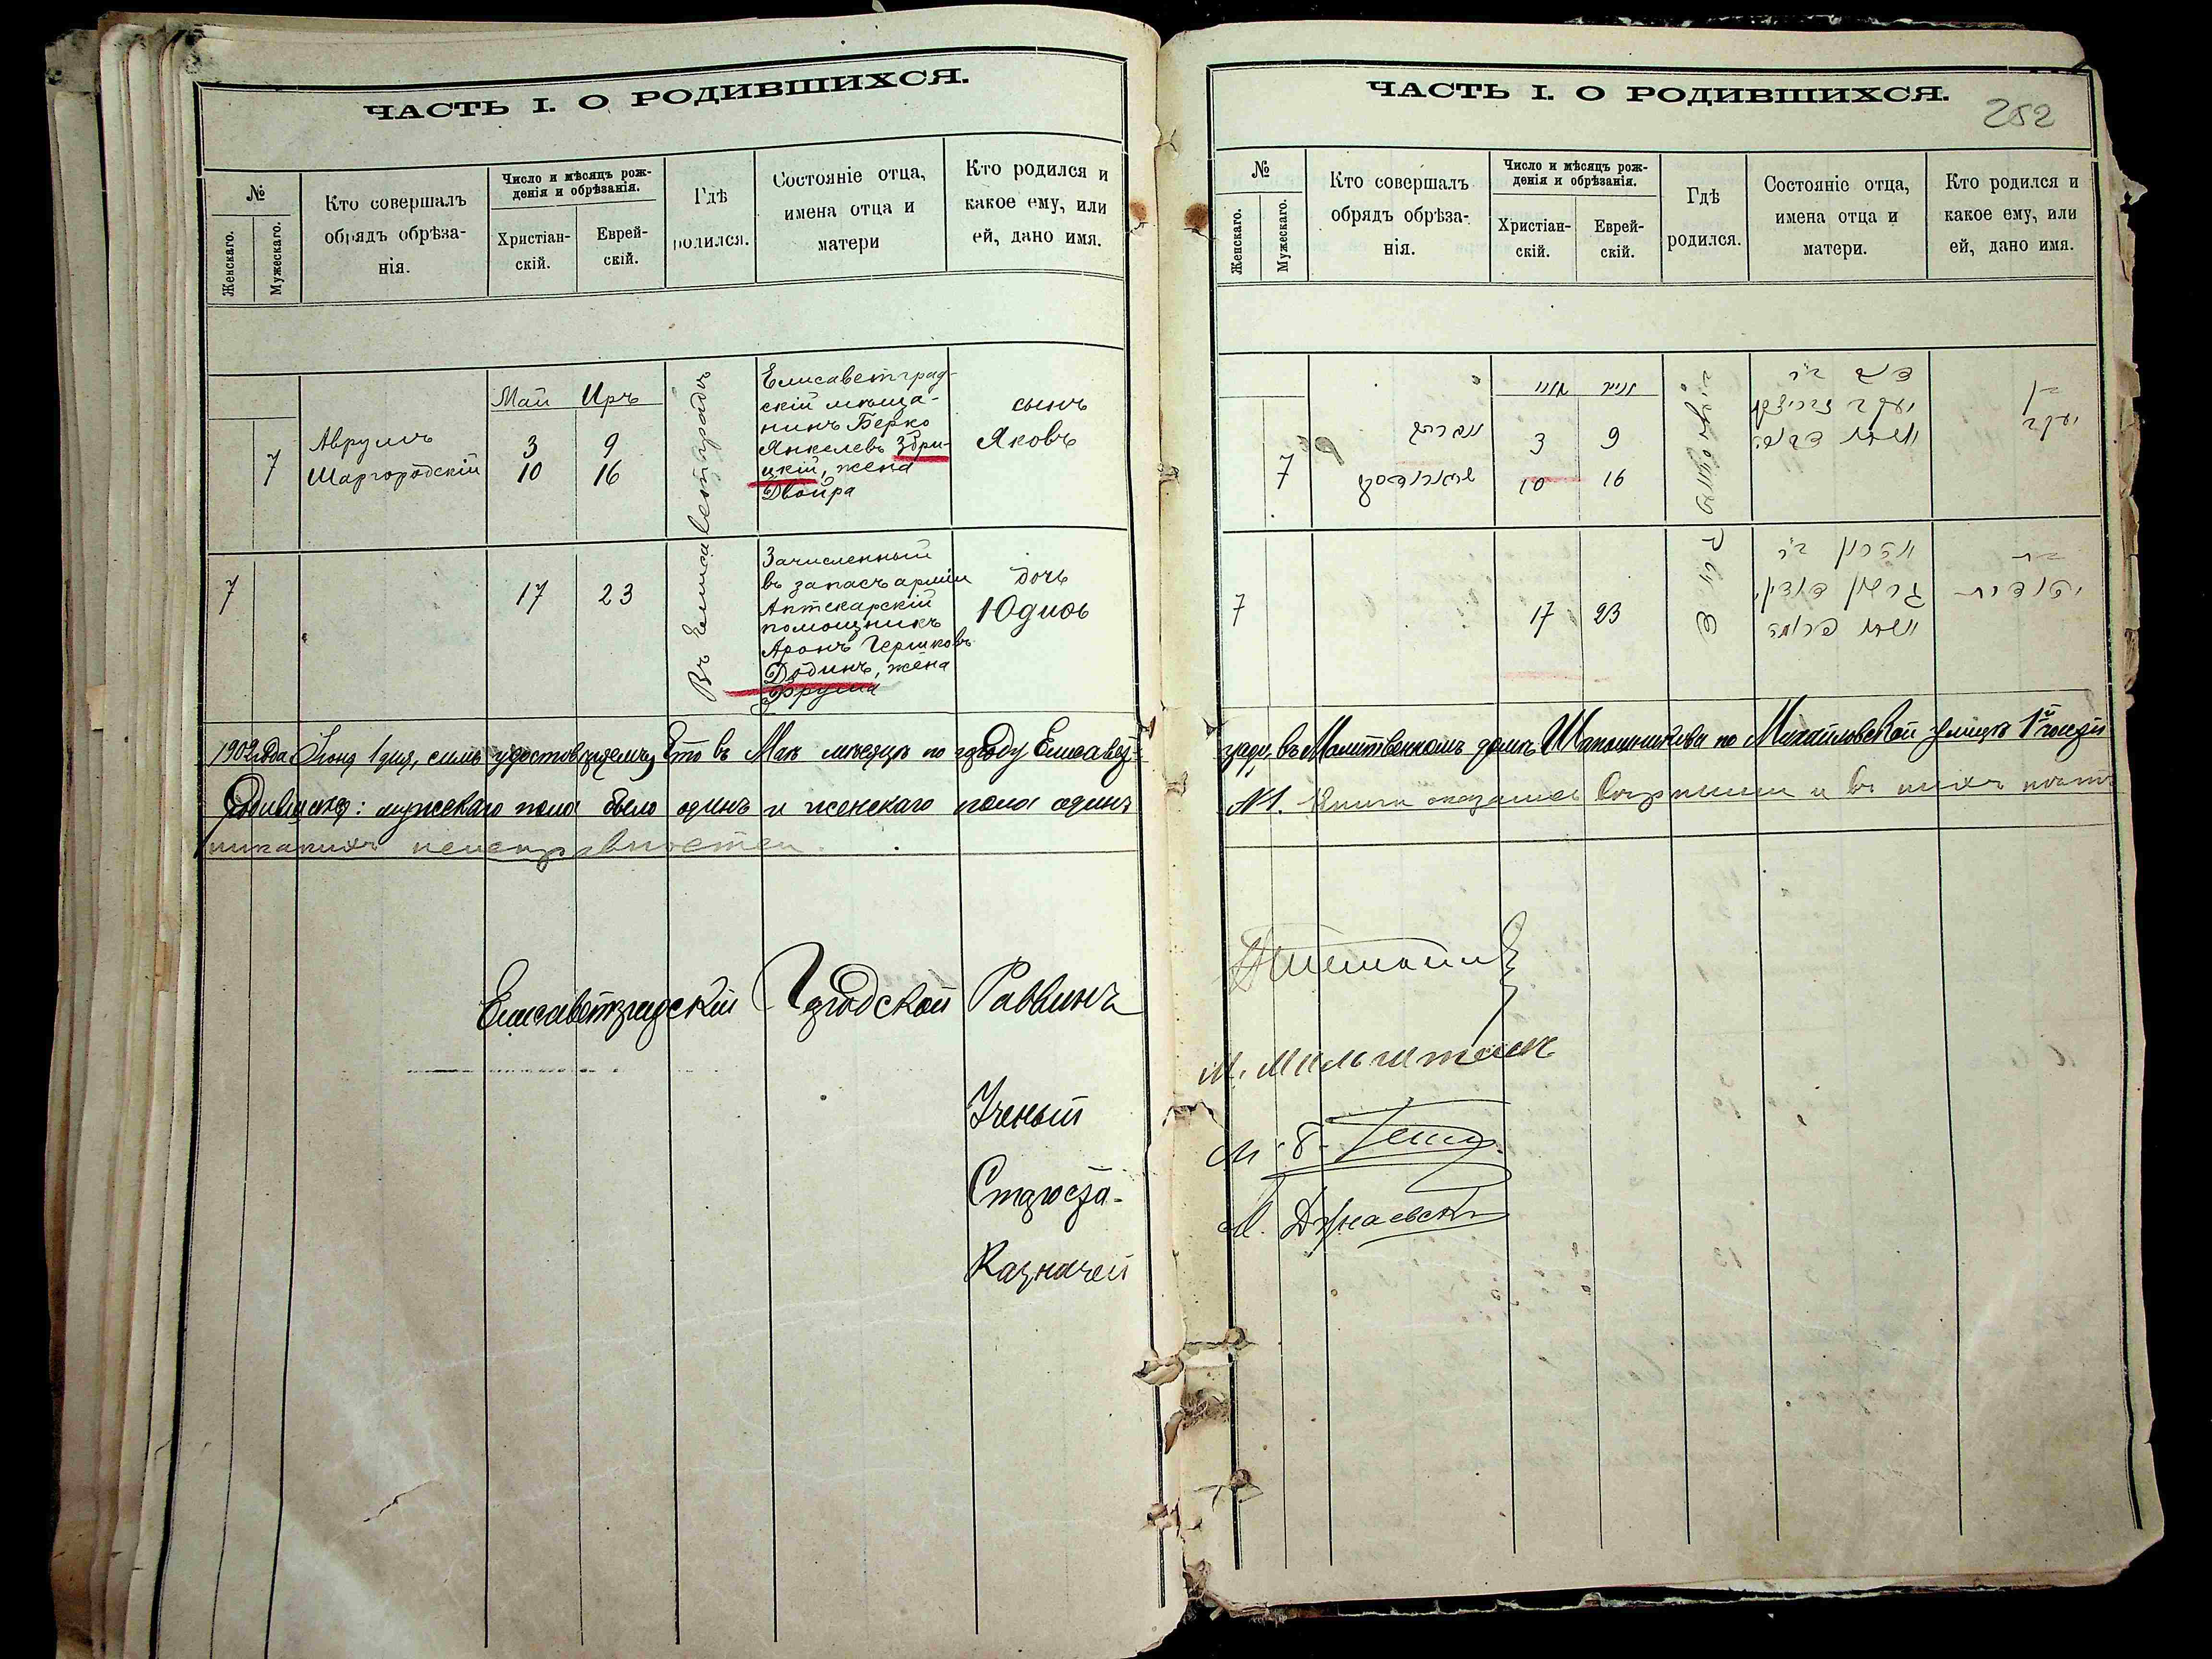 ЧАСТЬ I. О РОДИВШИХСЯ.
№
Женскаго.
Мужескаго.
Кто совершалъ
обрядъ обрѣза-
нія.
Число и мѣсяцъ рож-
денія и обрѣзанія.
Христіан-
скій.
Еврей-
скій.
Гдѣ
родился.
Состояніе отца,
имена отца и
матери
Кто родился и
какое ему, или
ей, дано имя.
7
Аврумъ
Шаргородскій
Май Иръ
3 9
10 16
Въ Елисаветградѣ
Елисаветград-
скій мѣща-
нинъ Берко
Янкелевъ Збри-
цкій, жена
Двойра
сынъ
Яковъ
7
17 23
Зачисленный
въ запасъ арміи
Аптекарскій
помощникъ
Аронъ Гершковъ
Додинъ, жена
Фрума
дочь
Юдиѳь
1902 года Іюня 1 дня, симъ удостовѣряемъ, что въ Маѣ мѣсяцѣ по городу Елисавет-
Родившихся: мужескаго пола было одинъ и женскаго пола одинъ
никакихъ неисправностей.
Елисаветградскій Городской Раввинъ
Ученый
Староста
Казначей
ЧАСТЬ I. О РОДИВШИХСЯ.
252
№
Женскаго.
Мужескаго.
Кто совершалъ
обрядъ обрѣза-
нія.
Число и мѣсяцъ рож-
денія и обрѣзанія.
Христіан-
скій.
Еврей-
скій.
Гдѣ
родился.
Состояніе отца,
имена отца и
матери.
Кто родился и
какое ему, или
ей, дано имя.
7
3 9
10 16
בן
יעקב
7
17 23
אהרן
גרשון
בת
יהודית
граду, въ Молитвенномъ домѣ Шапошникова по Михайловской улицѣ
№1. Книги оказались
М. Мильштейн